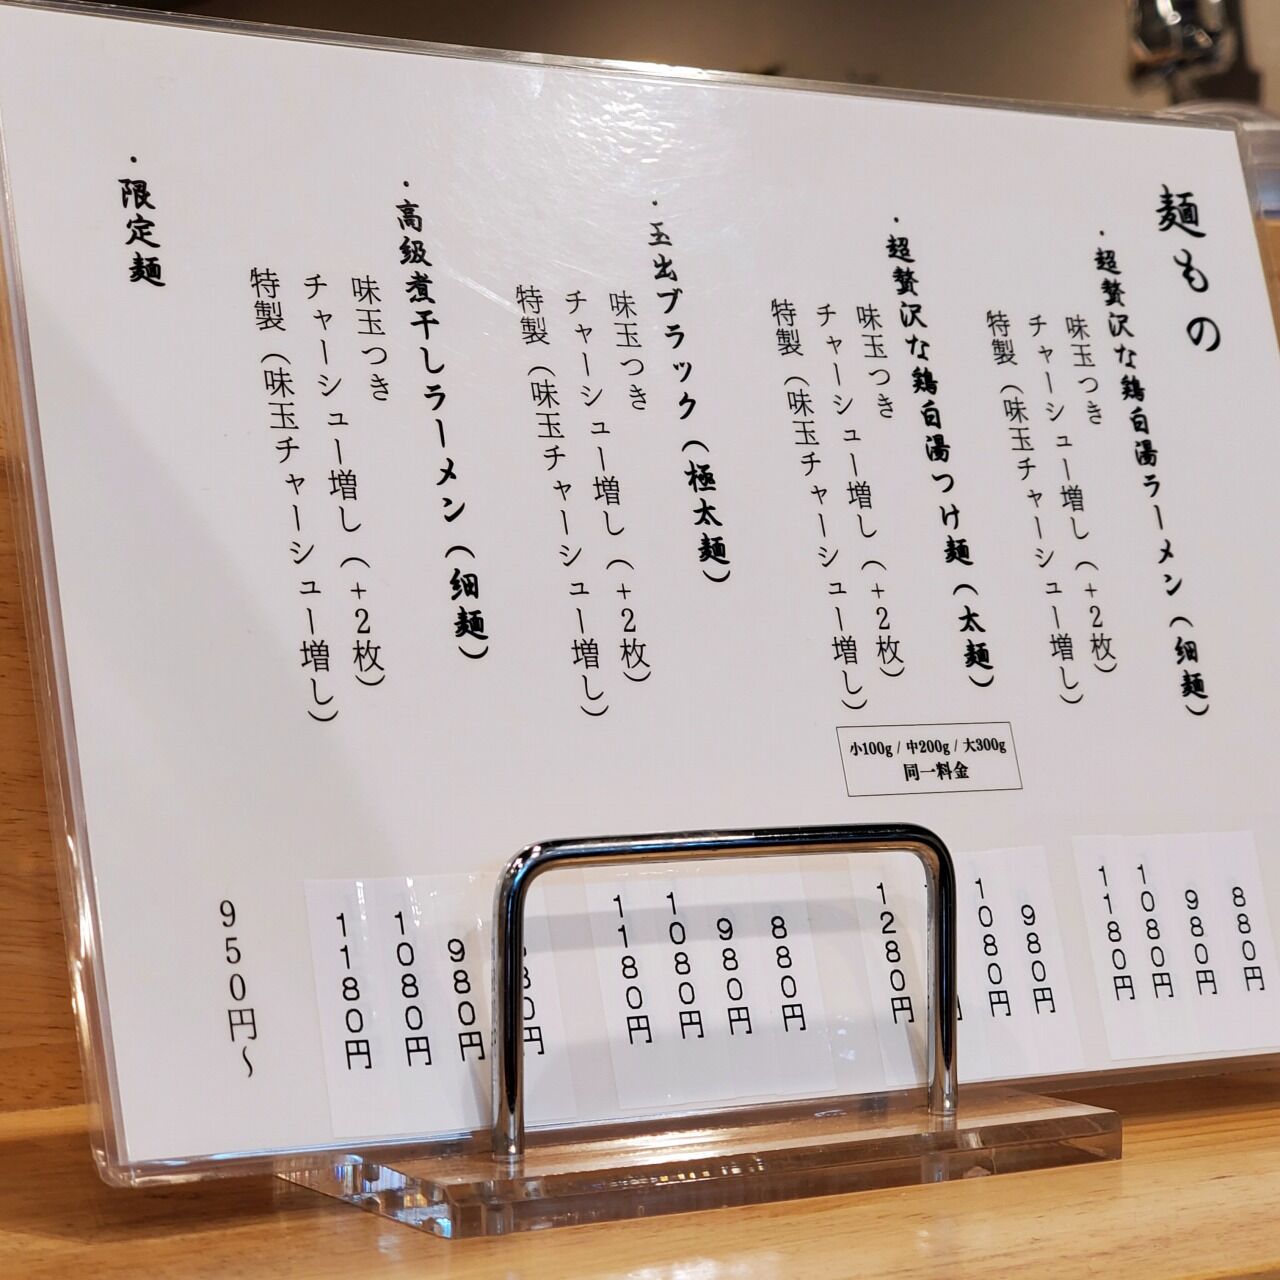 麺もの
・超贅沢な鶏白湯ラーメン（細麺）
880円
味玉つき
980円
チャーシュー増し（+2枚）
1080円
特製（味玉チャーシュー増し）
1180円
・超贅沢な鶏白湯つけ麺（太麺）
小100g / 中200g / 大300g
同一料金
980円
味玉つき
1080円
チャーシュー増し（+2枚）
特製（味玉チャーシュー増し）
1280円
・玉出ブラック（極太麺）
880円
味玉つき
980円
チャーシュー増し（+2枚）
1080円
特製（味玉チャーシュー増し）
1180円
・高級煮干しラーメン（細麺）
80円
味玉つき
980円
チャーシュー増し（+2枚）
1080円
特製（味玉チャーシュー増し）
1180円
・限定麺
950円～